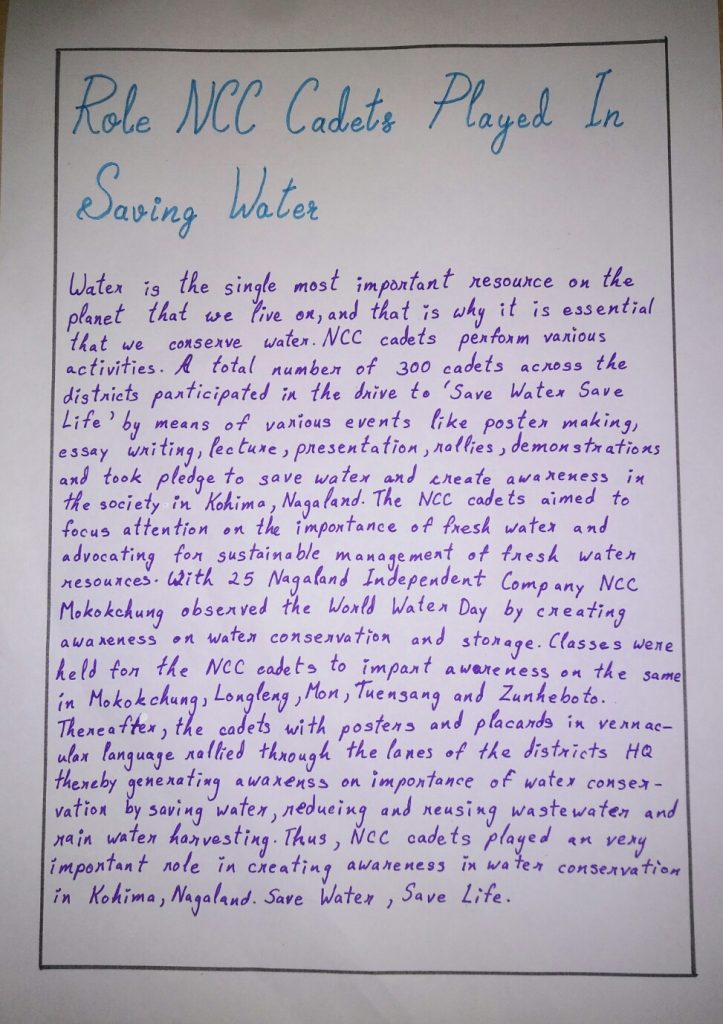 Role NCC Cadets Played In
Saving Water
Water is the single most important resource on the
planet that we live on, and that is why it is essential
that we conserve water. NCC cadets perform various
activities. A total number of 300 cadets across the
districts participated in the drive to 'Save Water Save
Life' by means of various events like poster making,
essay writing, lecture, presentation, rallies, demonstrations
and took pledge to save water and create awareness in
the society in Kohima, Nagaland. The NCC cadets aimed to
focus attention on the importance of fresh water and
advocating for sustainable management of fresh water
resources. With 25 Nagaland Independent Company NCC
Mokokchung observed the World Water Day by creating
awareness on water conservation and storage. Classes were
held for the NCC cadets to impart awareness on the same
in Mokokchung, Longleng, Mon, Tuensang and Zunheboto.
Thereafter, the cadets with posters and placards in vernac-
ular language rallied through the lanes of the districts HQ
thereby generating awarenss on importance of water conser-
vation by saving water, reducing and reusing wastewater and
rain water harvesting. Thus, NCC cadets played an very
important role in creating awareness in water conservation
in Kohima, Nagaland. Save Water, Save Life.